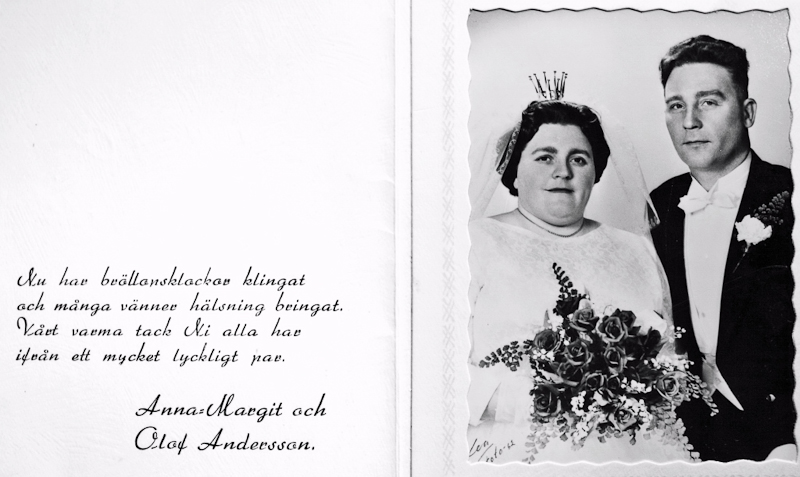 Nu har bröllopsklockor klingat
och många vänner hälsning bringat.
Vårt varma tack Ni alla har
ifrån ett mycket lyckligt par.
Anna-Margit och
Olof Andersson.